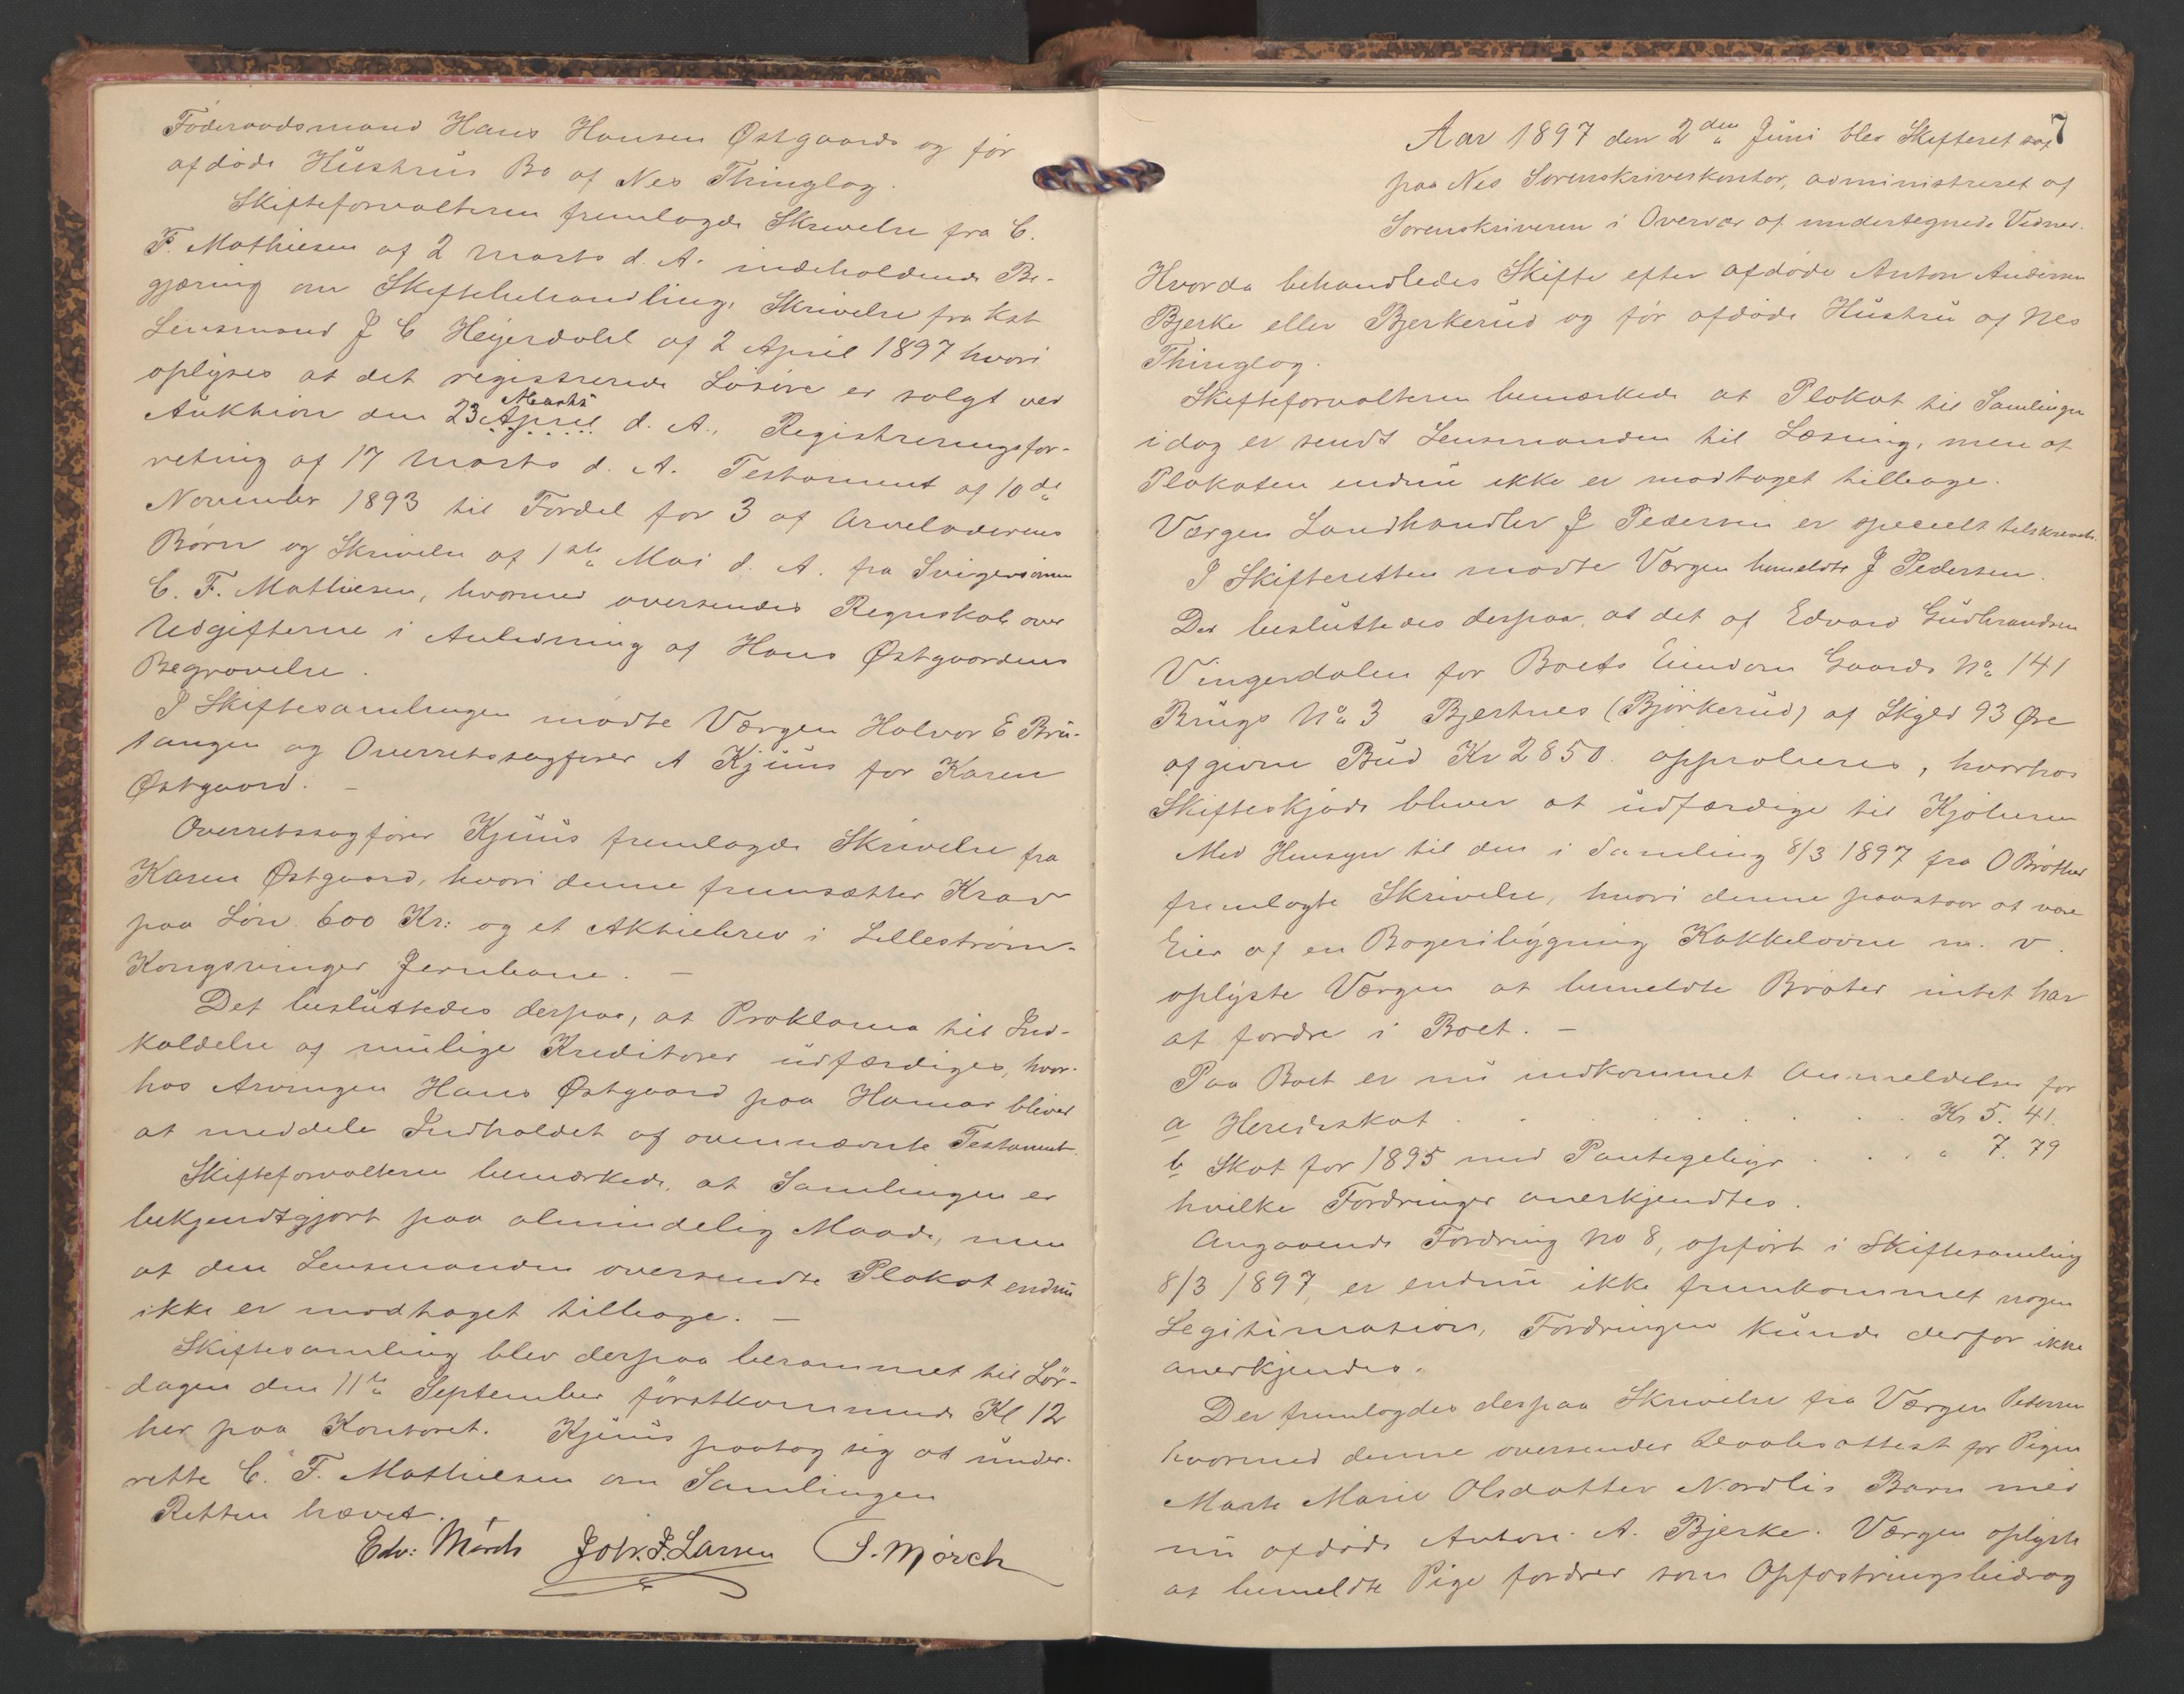 Föderaadsmand Hans Hansen Østgaards og før
afdøde Hustrus Bo af Nes Thinglag.
Skifteforvalteren fremlagde Skrivelse fra C.
F. Mathiesen af 2 Marts d. A. indeholdende Be-
gjæring om Skiftebehandling, Skrivelse fra Kst
Lensmand J C Heyerdahl af 2 April 1897 hvori
oplyses at det registrerede Løsøre er solgt ved
Marts
Auktion den 23 April d. A., Registreringsfor-
retning af 17 Marts d. A. Testament af 10de
November 1893 til Fordel for 3 af Arveladerens
Børn og Skrivelse af 1ste Mai d. A. fra Svigersønnen
C. F. Mathiesen, hvormed oversendes Regnskab over
Udgifterne i Anledning af Hans Østgaardens
Begravelse.
I Skiftesamlingen mødte Værgen Halvor E Bru-
stangen og Overretssagfører A Kjuus for Karen
Østgaard. —
Overretssagfører Kjuus fremlagde Skrivelse fra
Karen Østgaard, hvori denne fremsætter Krav
paa Løn 600 Kr: og et Aktiebrev i Lillestrøm-
Kongsvinger Jernbane. —
Det besluttedes derpaa, at Proklama til Ind-
kaldelse af mulige Kreditorer udfærdiges, hvor-
hos Arvingen Hans Østgaard paa Hamar bliver
at meddele Indholdet af ovennævnte Testament.
Skifteforvalteren bemærkede, at Samlingen er
bekjendtgjort paa almindelig Maade, men
at den Lensmanden oversendte Plakat endnu
ikke er modtaget tilbage. —
Skiftesamling blev derpaa berammet til Lør-
dagen den 11te September førstkommende Kl 12
her paa Kontoret. Kjuus paatog sig at under-
rette C. F. Mathiesen om Samlingen
Retten hævet.
Edv: Mørch Joh. J. Larsen S. Mørch
7
Aar 1897 den 2den Juni blev Skifteret sat
paa Nes Sorenskriverkontor, administreret af
Sorenskriveren i Overvær af undertegnede Vidner.
Hvorda behandledes Skifte efter afdøde Anton Andersen
Bjerke eller Bjerkerud og før afdøde Hustru af Nes
Thinglag.
Skifteforvalteren bemærkede at Plakat til Samlingen
idag er sendt Lensmanden til Læsning, men at
Plakaten endnu ikke er modtaget tilbage.
Værgen Landhandler J Pedersen er specielt tilskrevet.
I Skifteretten mødte Værgen bemeldte J Pedersen.
Det besluttedes derpaa, at det af Edvard Gudbrandsen
Vingerdalen for Boets Eiendom Gaards No 141
Brugs No 3 Bjertnes (Bjørkerud) af Skyld 93 Øre
afgivne Bud Kr 2850. approberes, hvorhos
Skifteskjøde bliver at udfærdige til Kjøberen
Med Hensyn til den i Samling 8/3 1897 fra O Bröther
fremlagte Skrivelse, hvori denne paastaar at være
Eier af en Bageribygning Kakkelovne m. v.
oplyste Værgen at bemeldte Bråter intet har
at fordre i Boet. —
Paa Boet er nu indkommet Anmeldelse for
a Heredsskat . . . . . . . . Kr 5. 41.
b Skat for 1895 med Pantegebyr . . . " 7. 79
hvilke Fordringer anerkjendtes.
Angaaende Fordring No 8, opført i Skiftesamling
8/3 1897, er endnu ikke fremkommet nogen
Legitimation, Fordringen kunde derfor ikke
anerkjendes.
Der fremlagdes derpaa Skrivelse fra Værgen Pedersen
hvormed denne oversender Daabsattest for Pigen
Marte Marie Olsdatter Nordlis Barn med
nu afdøde Anton A. Bjerke. Værgen oplyste
at bemeldte Pige fordrer som Opfostringsbidrag